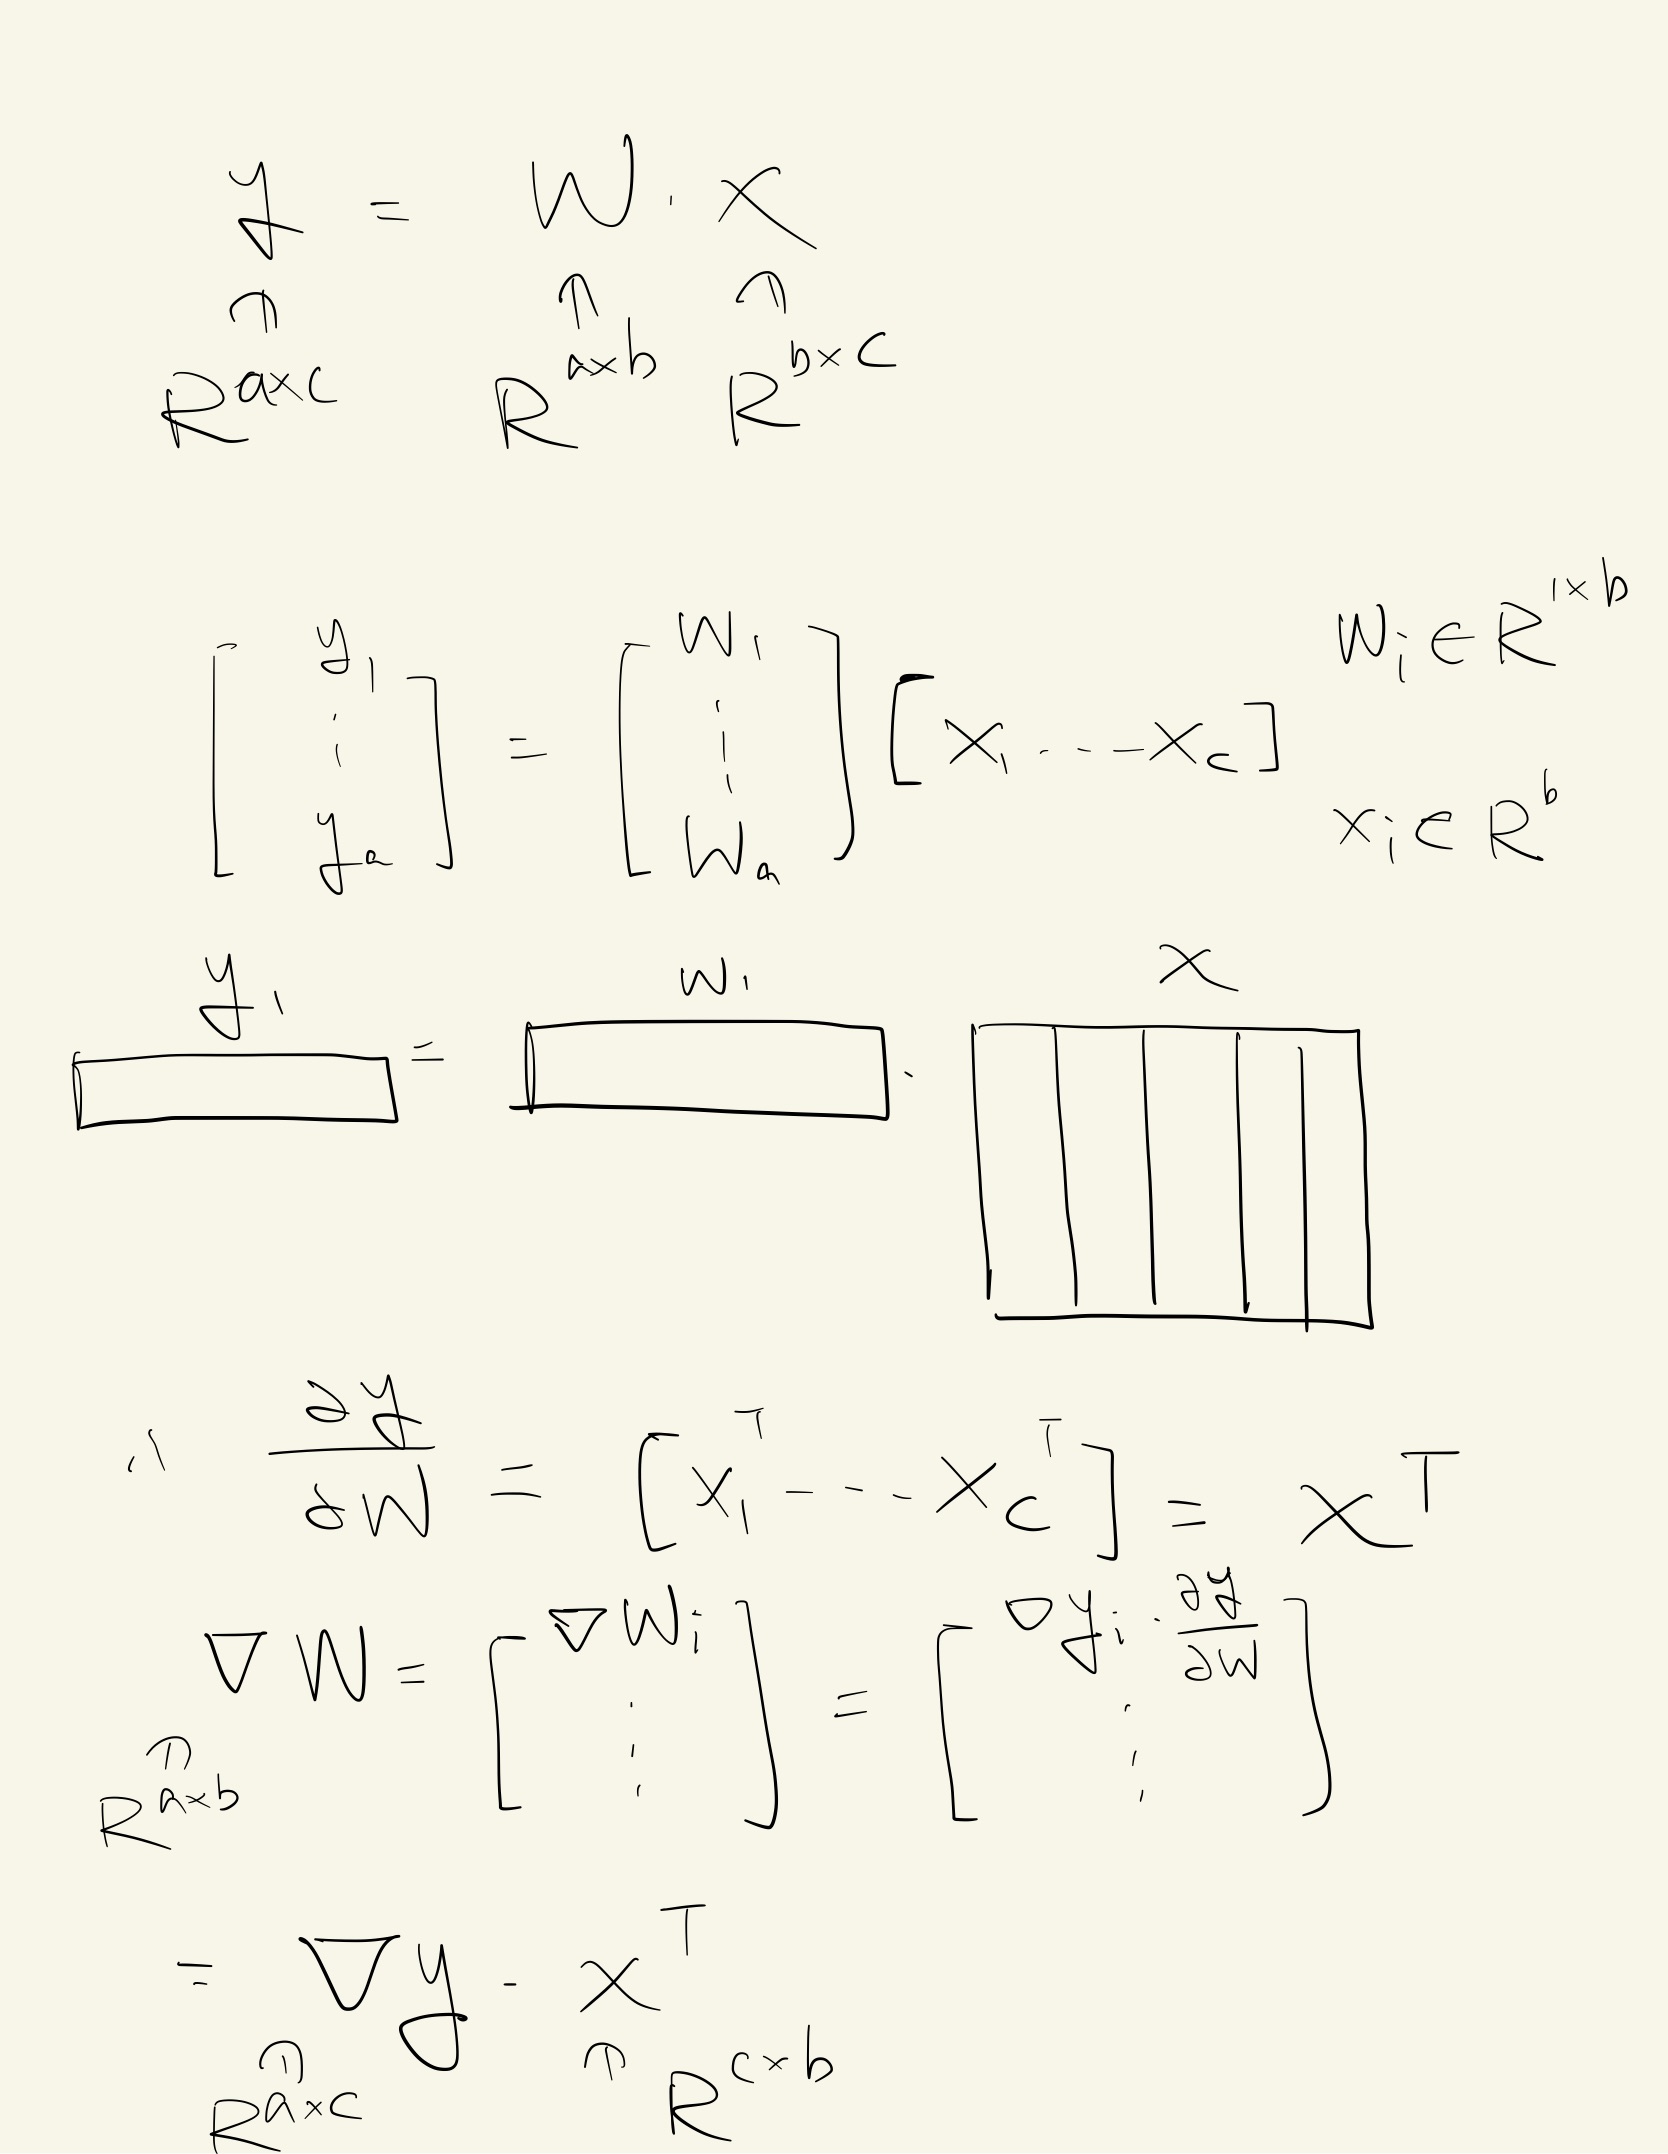 y = W · x
∈ R^{a×c} ∈ R^{a×b} ∈ R^{b×c}
[ y_1 ⋮ y_a ] = [ W_1 ⋮ W_a ] [ x_1 --- x_c ]
W_i ∈ R^{1×b}
x_i ∈ R^b
y_1 = W_1 · x
∴ ∂y/∂W = [ x_1^T --- x_c^T ] = x^T
∇W = [ ∇W_i ⋮ ] = [ ∇y_i · ∂y/∂W ⋮ ]
∈ R^{a×b}
= ∇y · x^T
∈ R^{a×c} ∈ R^{c×b}